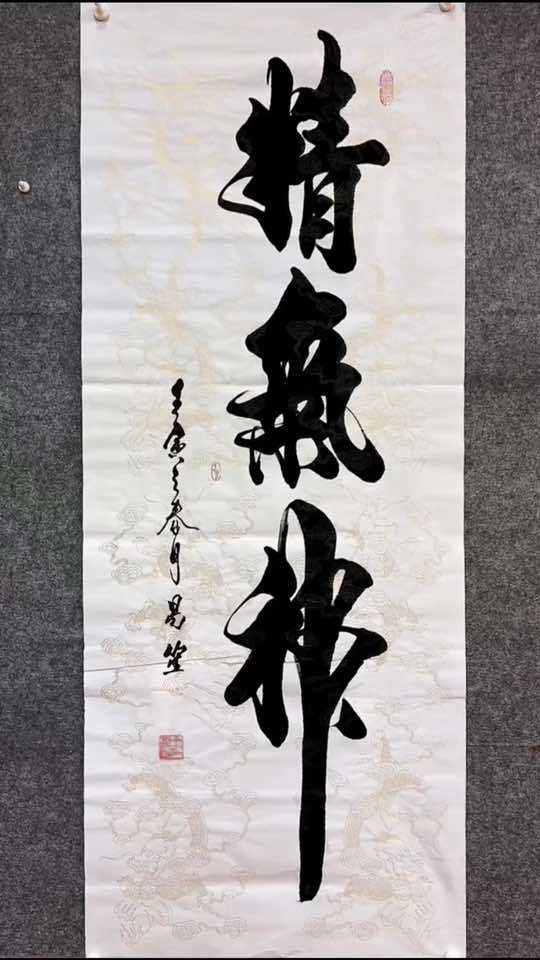 精氣神
壬寅之春月昌笙